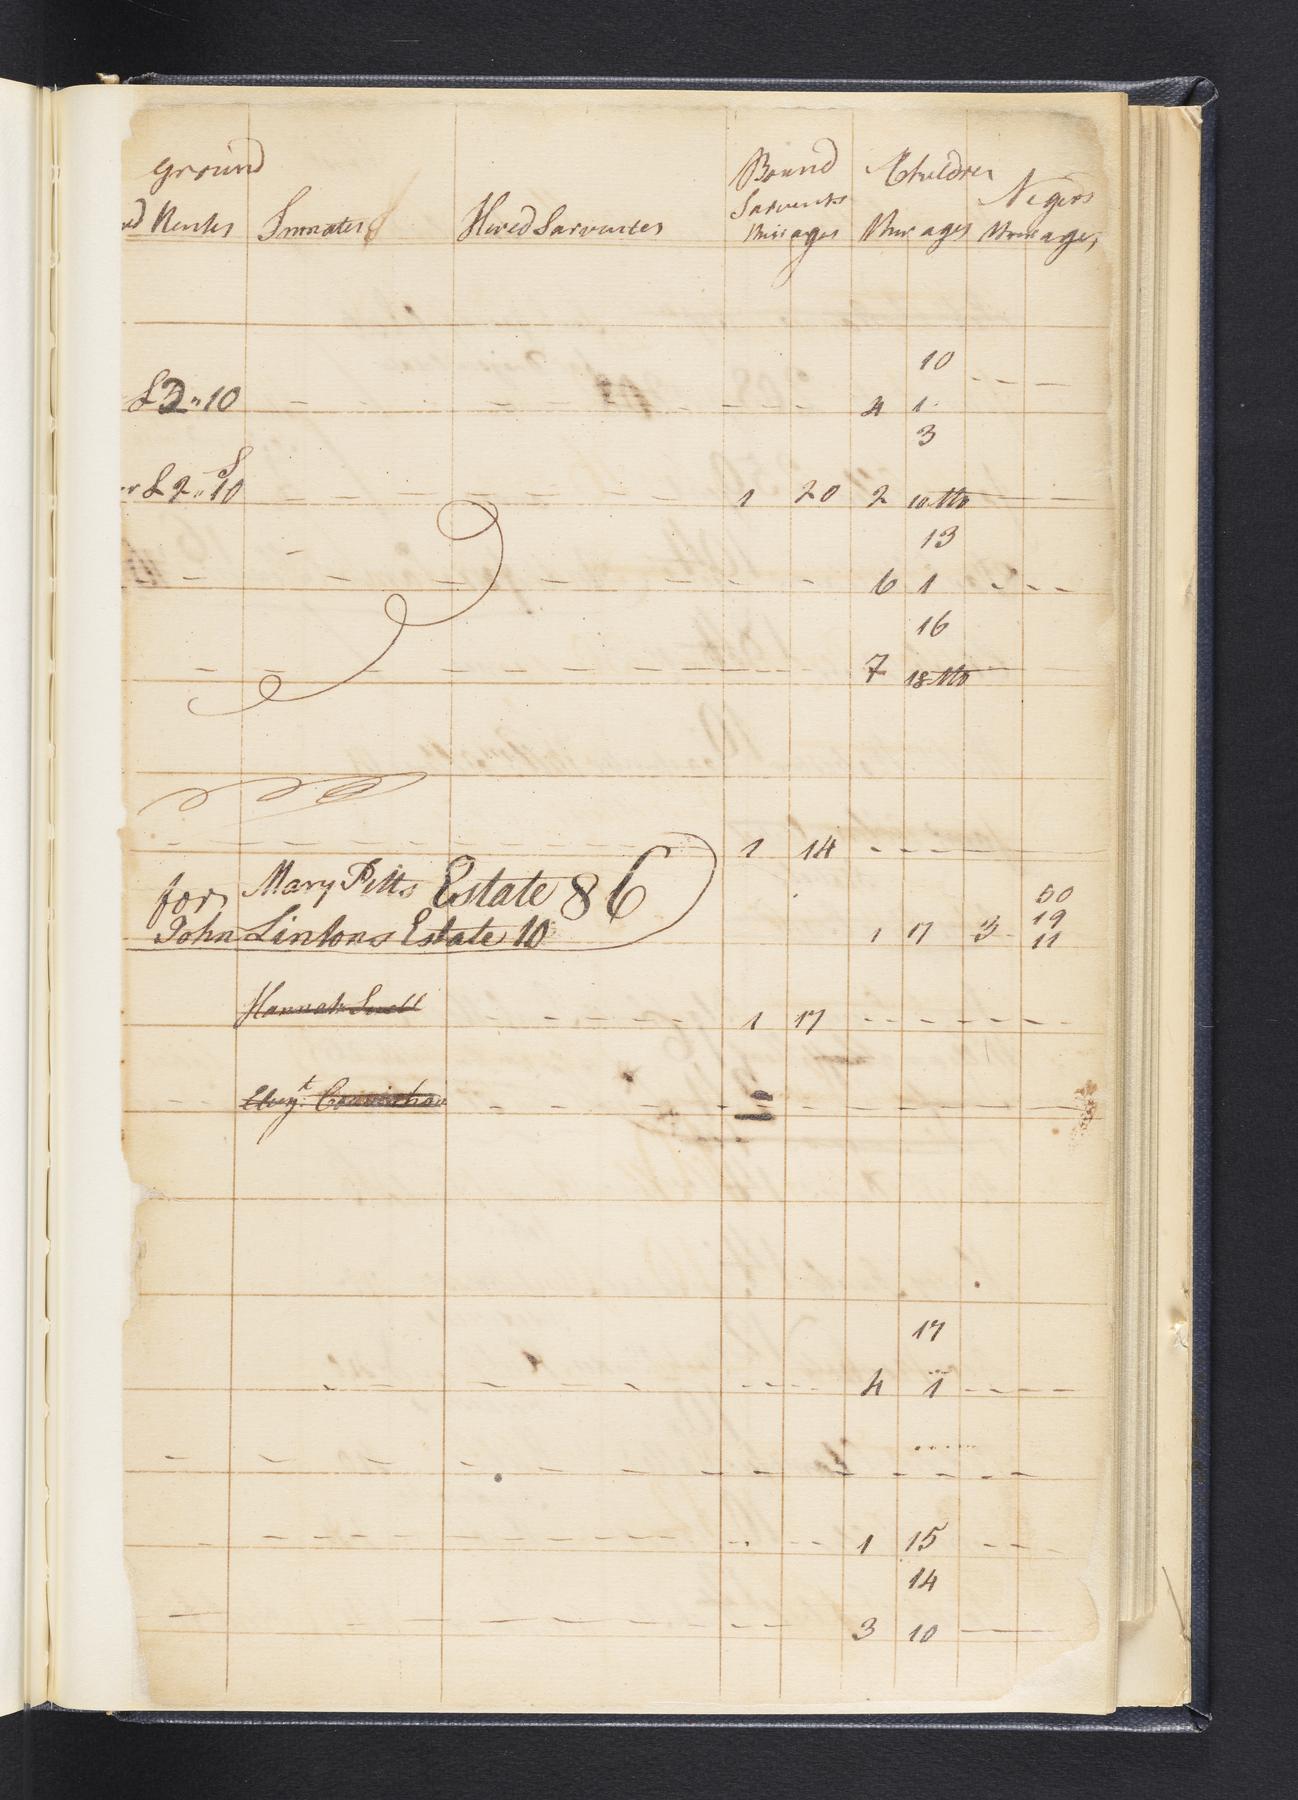 ground Bound Children
Sarvents Negros
Rents Inmates Hired Sarvantes Thir ages Thir ages Thir ages
10
£2"10 4 1
3
£2"10 1 20 2 10 Mo
13
6 1
16
7 18 Mo
1 14
for Mary Pitts Estate 86 50
19
John Lintons Estate 10 1 17 3 11
Hannah Snell 1 17
17
4 1
1 15
14
3 10